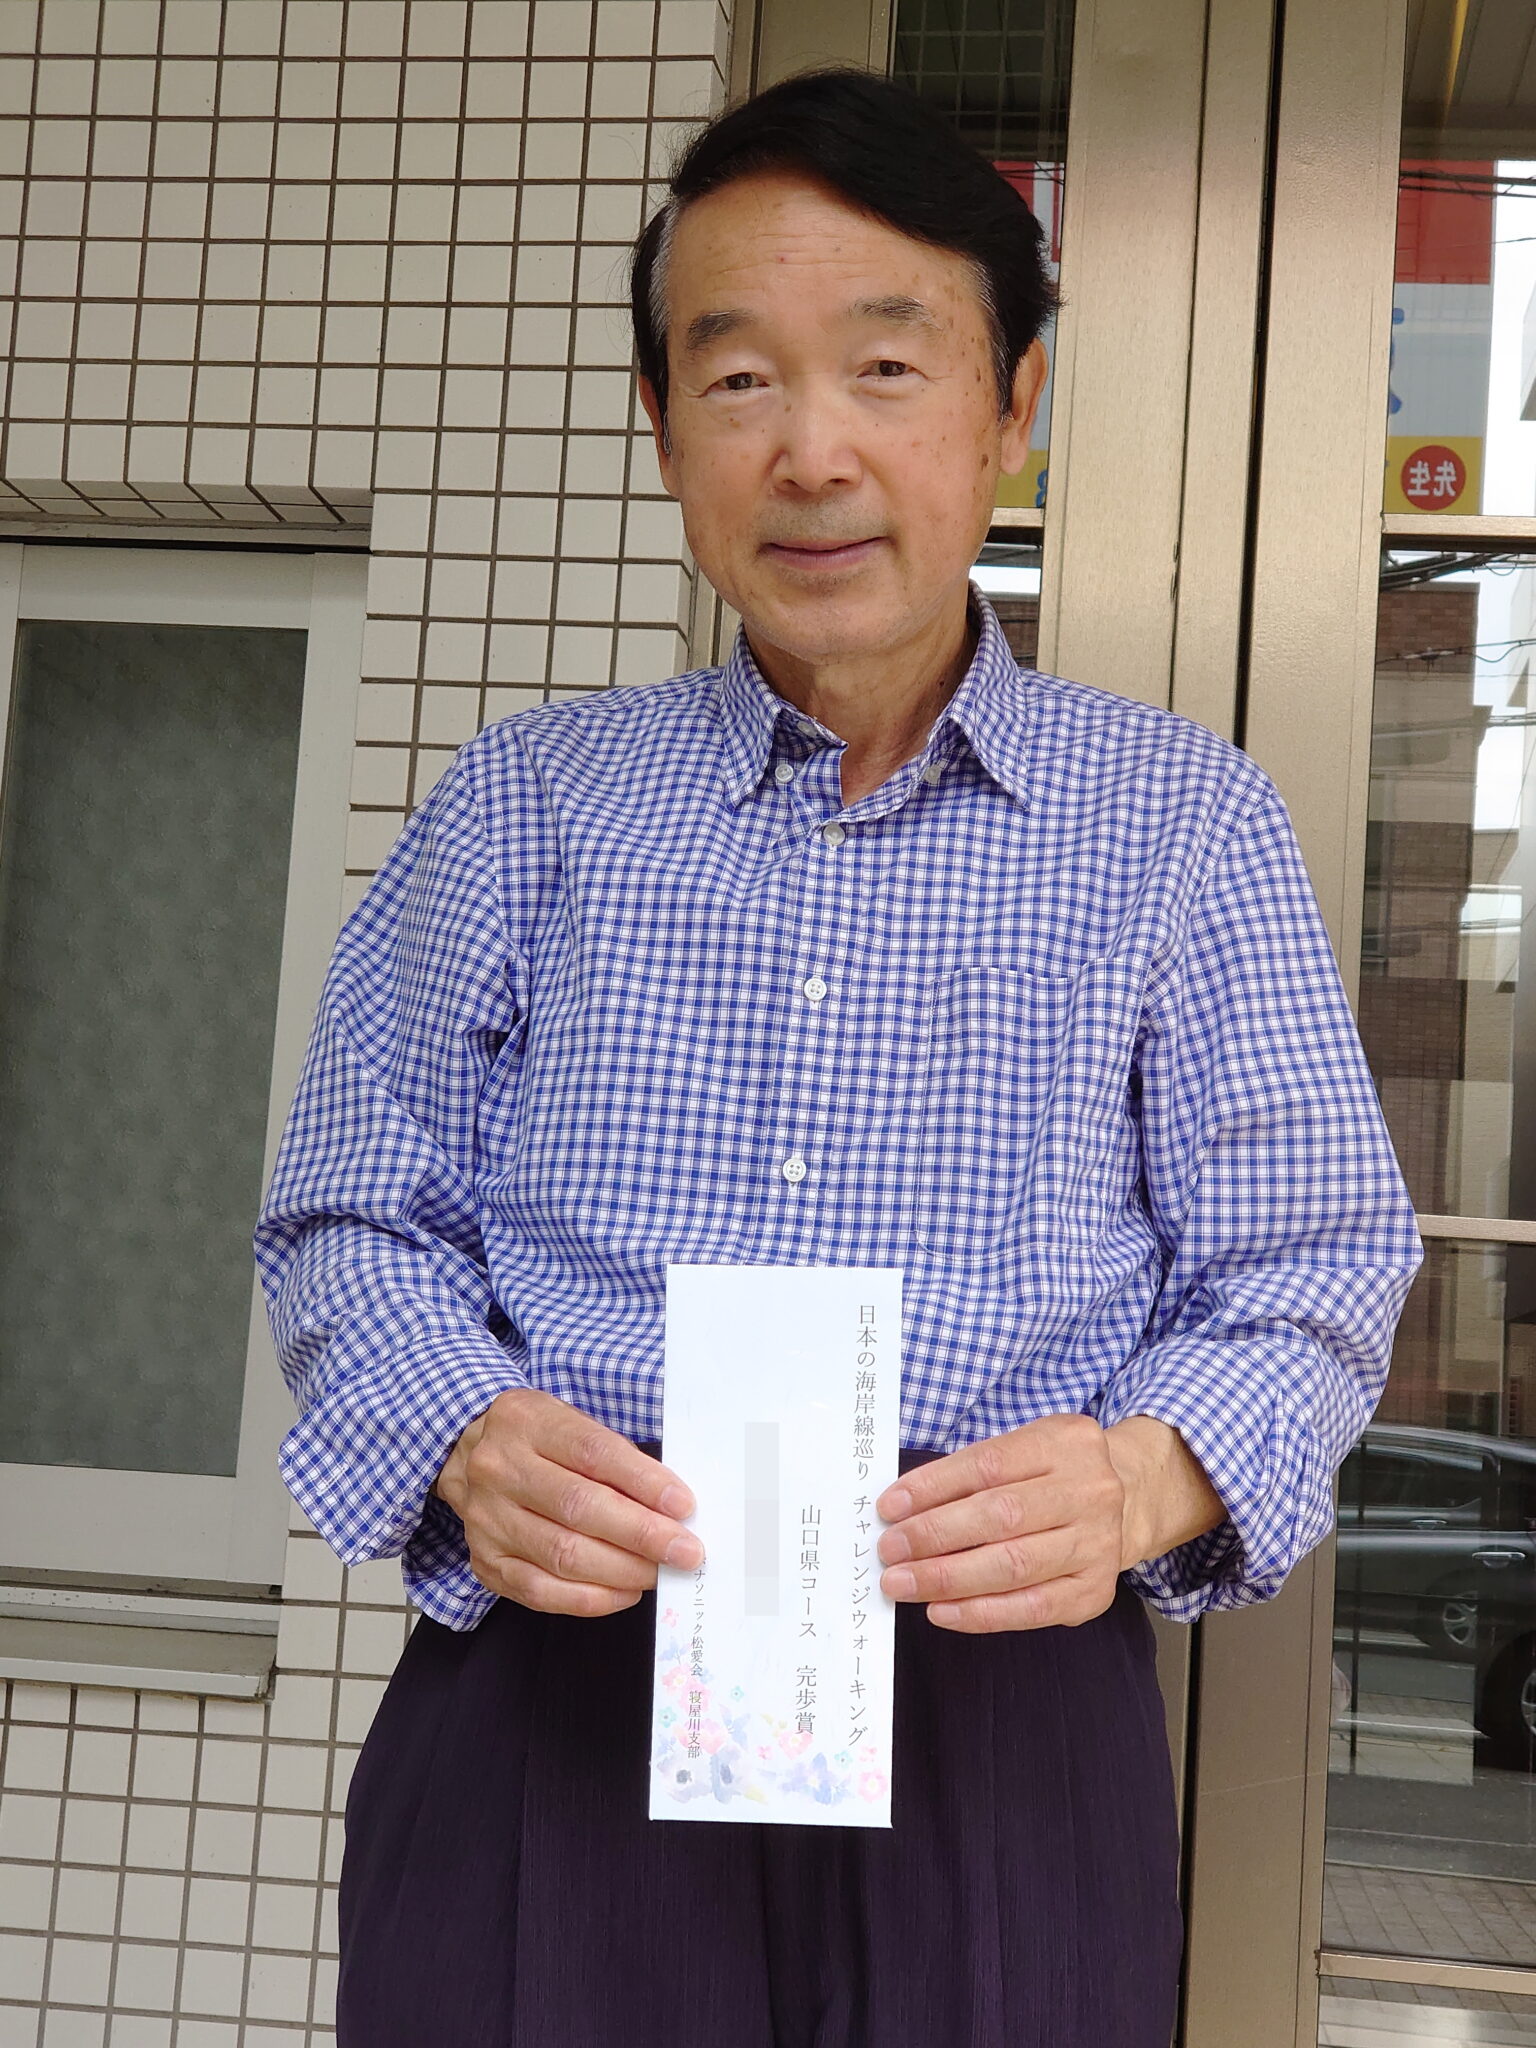 日本の海岸線巡り チャレンジウォーキング
山口県コース 完歩賞
ナソニック松愛会 寝屋川支部
先生